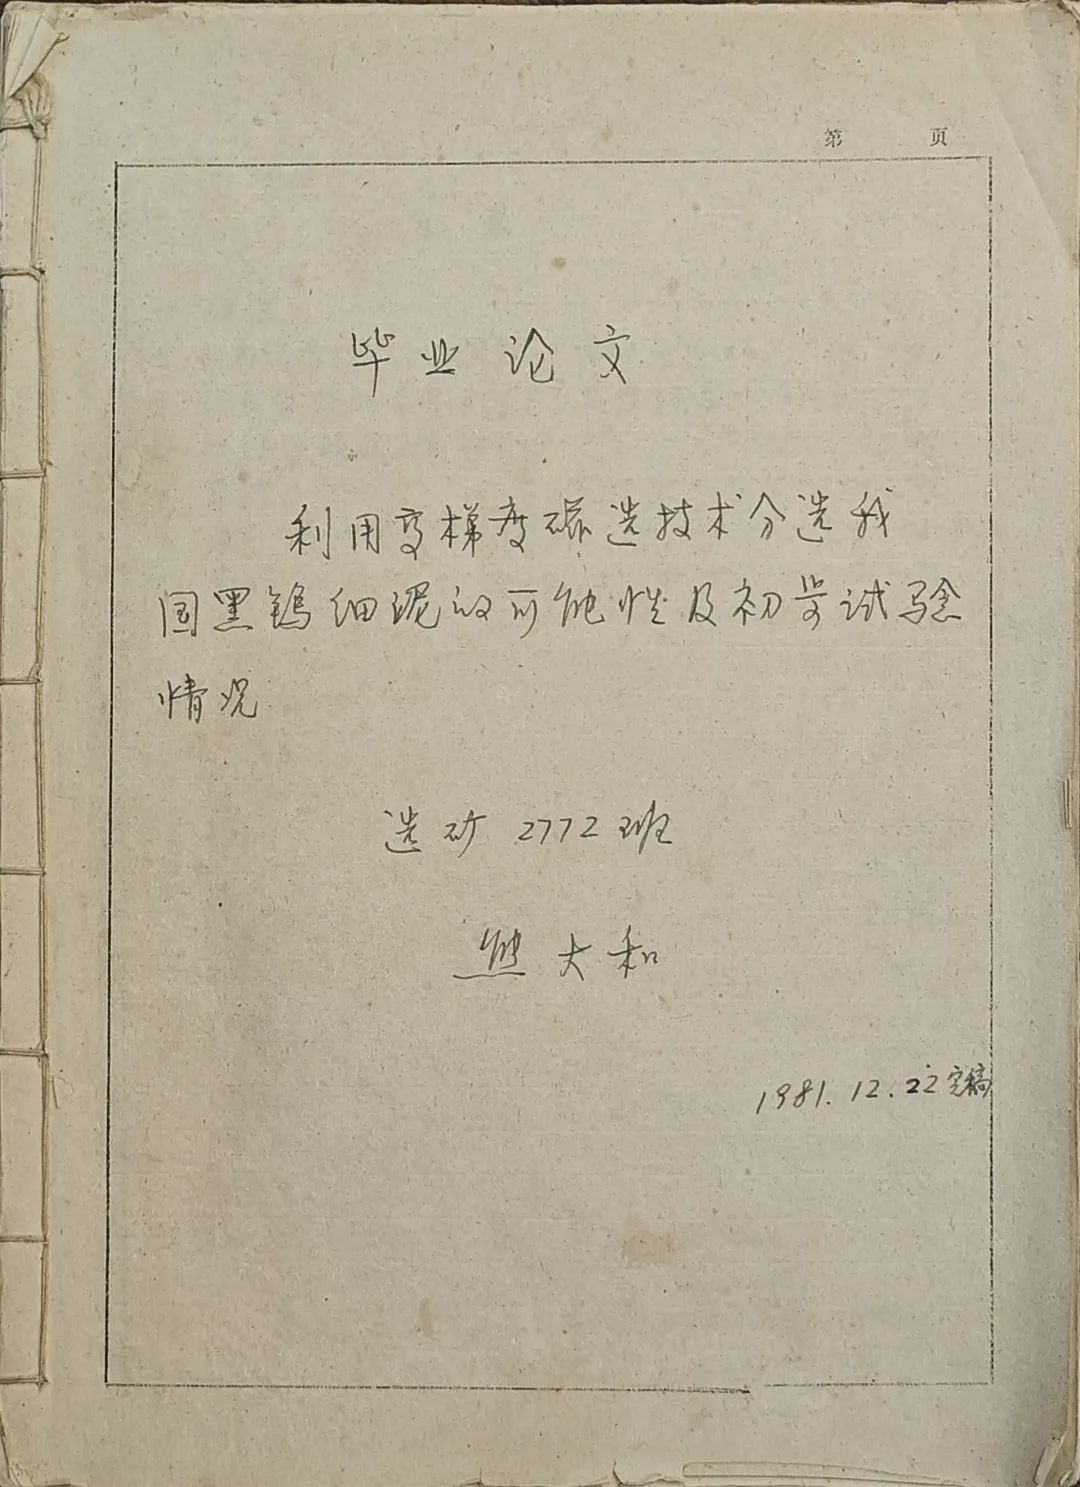 第 页
毕业论文
利用高梯度磁选技术分选我
国黑钨细泥的可能性及初步试验
情况
选矿2772班
熊大和
1981.12.22完稿